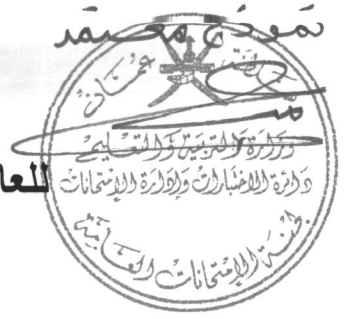 نموذج معتمد
سلطنة عمان
وزارة التربية والتعليم
دائرة الاختبارات وإدارة الامتحانات
للعا
لجنة الامتحانات العامة